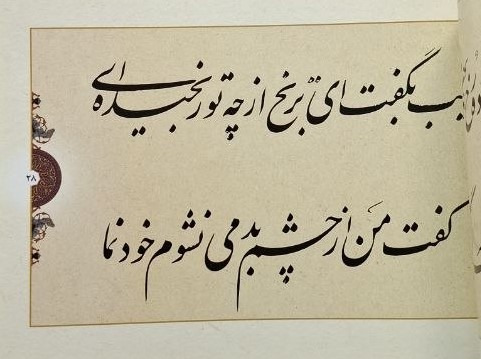 بگفت ای ترنج از چه تو رنجیده‌ای
۲۸
گفت من از چشم بد می نشوم خودنما